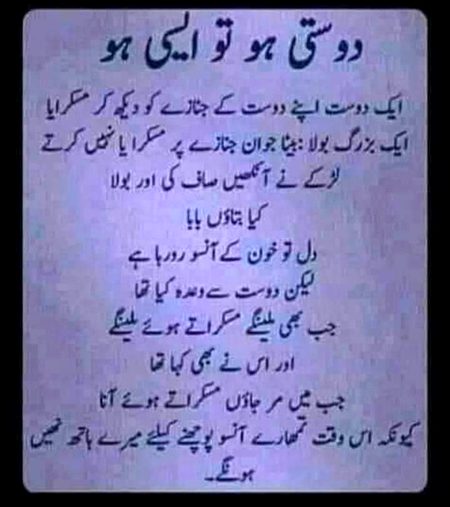 دوستی ہو تو ایسی ہو
ایک دوست اپنے دوست کے جنازے کو دیکھ کر مسکرایا
ایک بزرگ بولا : بیٹا جوان جنازے پر مسکرایا نہیں کرتے
لڑکے نے آنکھیں صاف کی اور بولا
کیا بتاؤں بابا
دل تو خون کے آنسو رو رہا ہے
لیکن دوست سے وعدہ کیا تھا
جب بھی ملینگے مسکراتے ہوئے ملینگے
اور اس نے بھی کہا تھا
جب میں مر جاؤں مسکراتے ہوئے آنا
کیونکہ اس وقت تمھارے آنسو پوچھنے کیلئے میرے ہاتھ نھیں
ہونگے۔